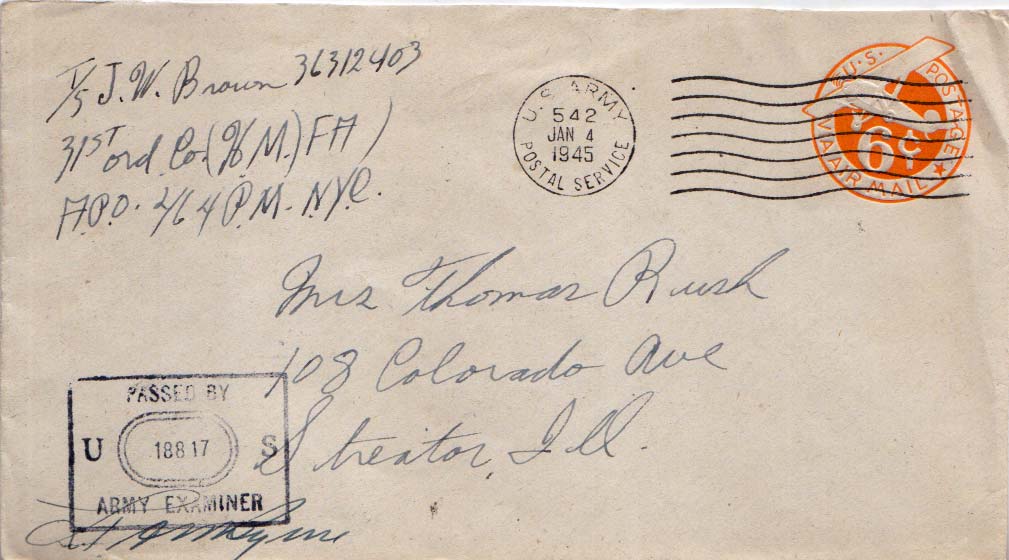 T/5 J. W. Brown 36312403
31ST Ord. Co. (H M.) FA
A.P.O. 264 P.M. N.Y.C.
U.S. ARMY
542
JAN 4
1945
POSTAL SERVICE
U.S. POSTAGE
6¢
VIA AIR MAIL
Mrs Thomas Rush
108 Colorado Ave
Streator, Ill.
PASSED BY
U 18817 S
ARMY EXAMINER